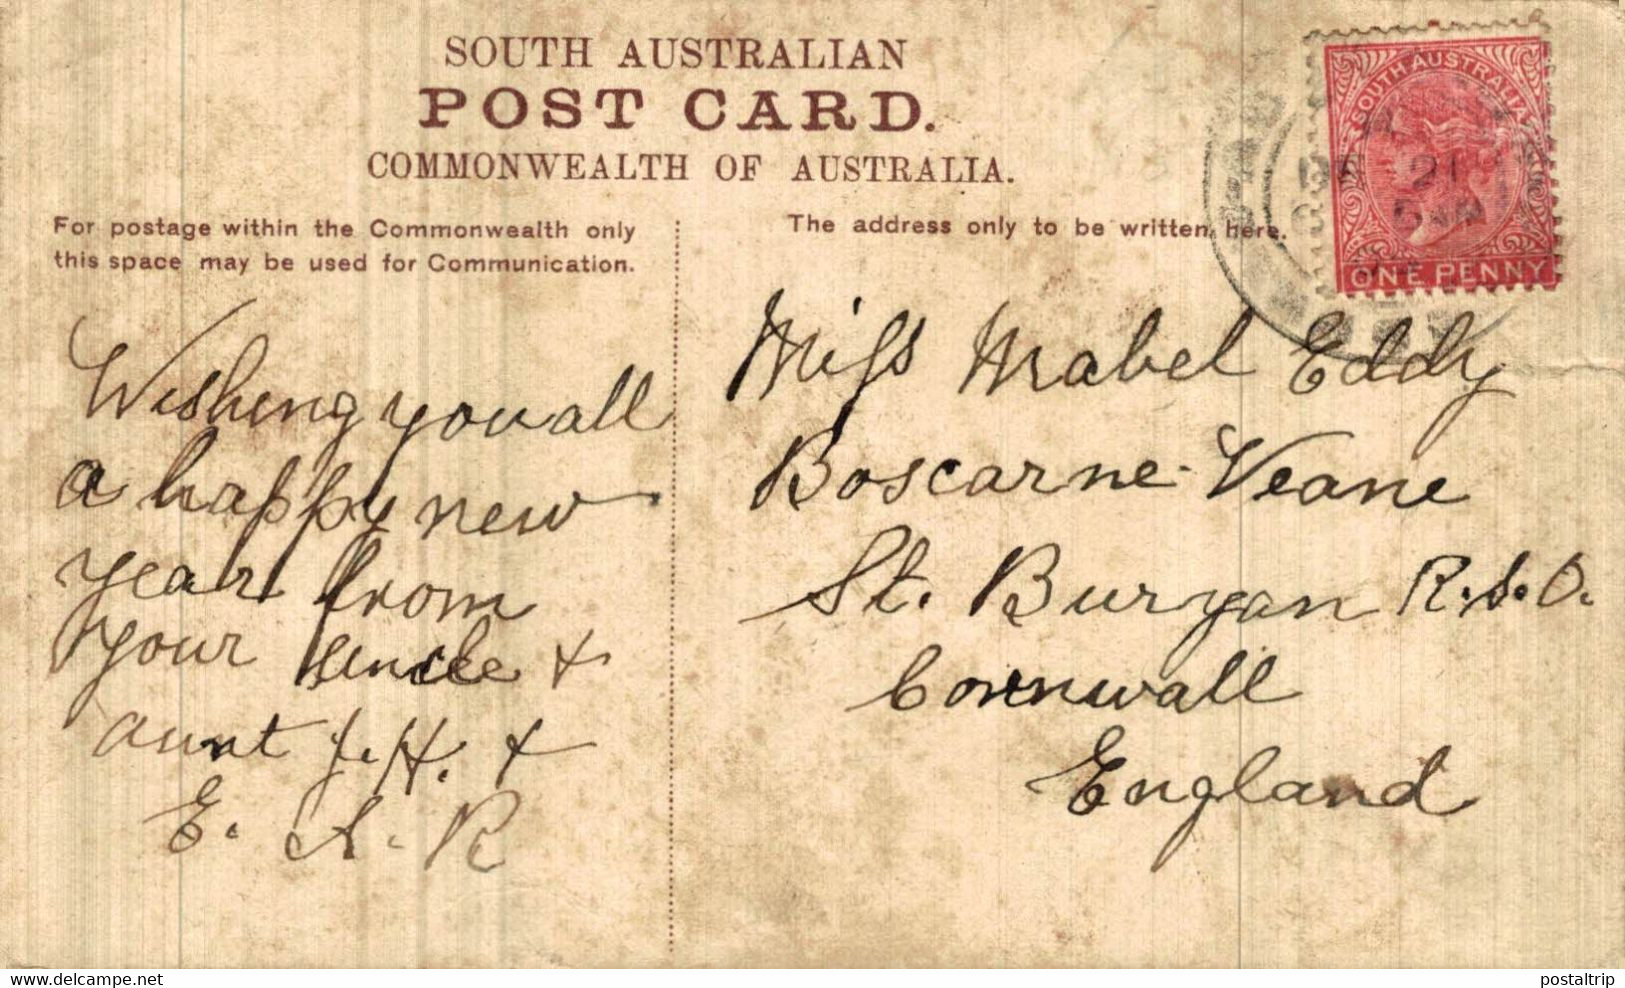 SOUTH AUSTRALIAN
POST CARD.
COMMONWEALTH OF AUSTRALIA.
For postage within the Commonwealth only
this space may be used for Communication.
The address only to be written here.
SOUTH AUSTRALIA
DE 21
ONE PENNY
Wishing you all
a happy new
year from
your uncle +
aunt J. H. +
E. A. R
Miss Mabel Eddy
Boscarne Veane
St. Buryan R.S.O.
Cornwall
England
www.delcampe.net
postaltrip